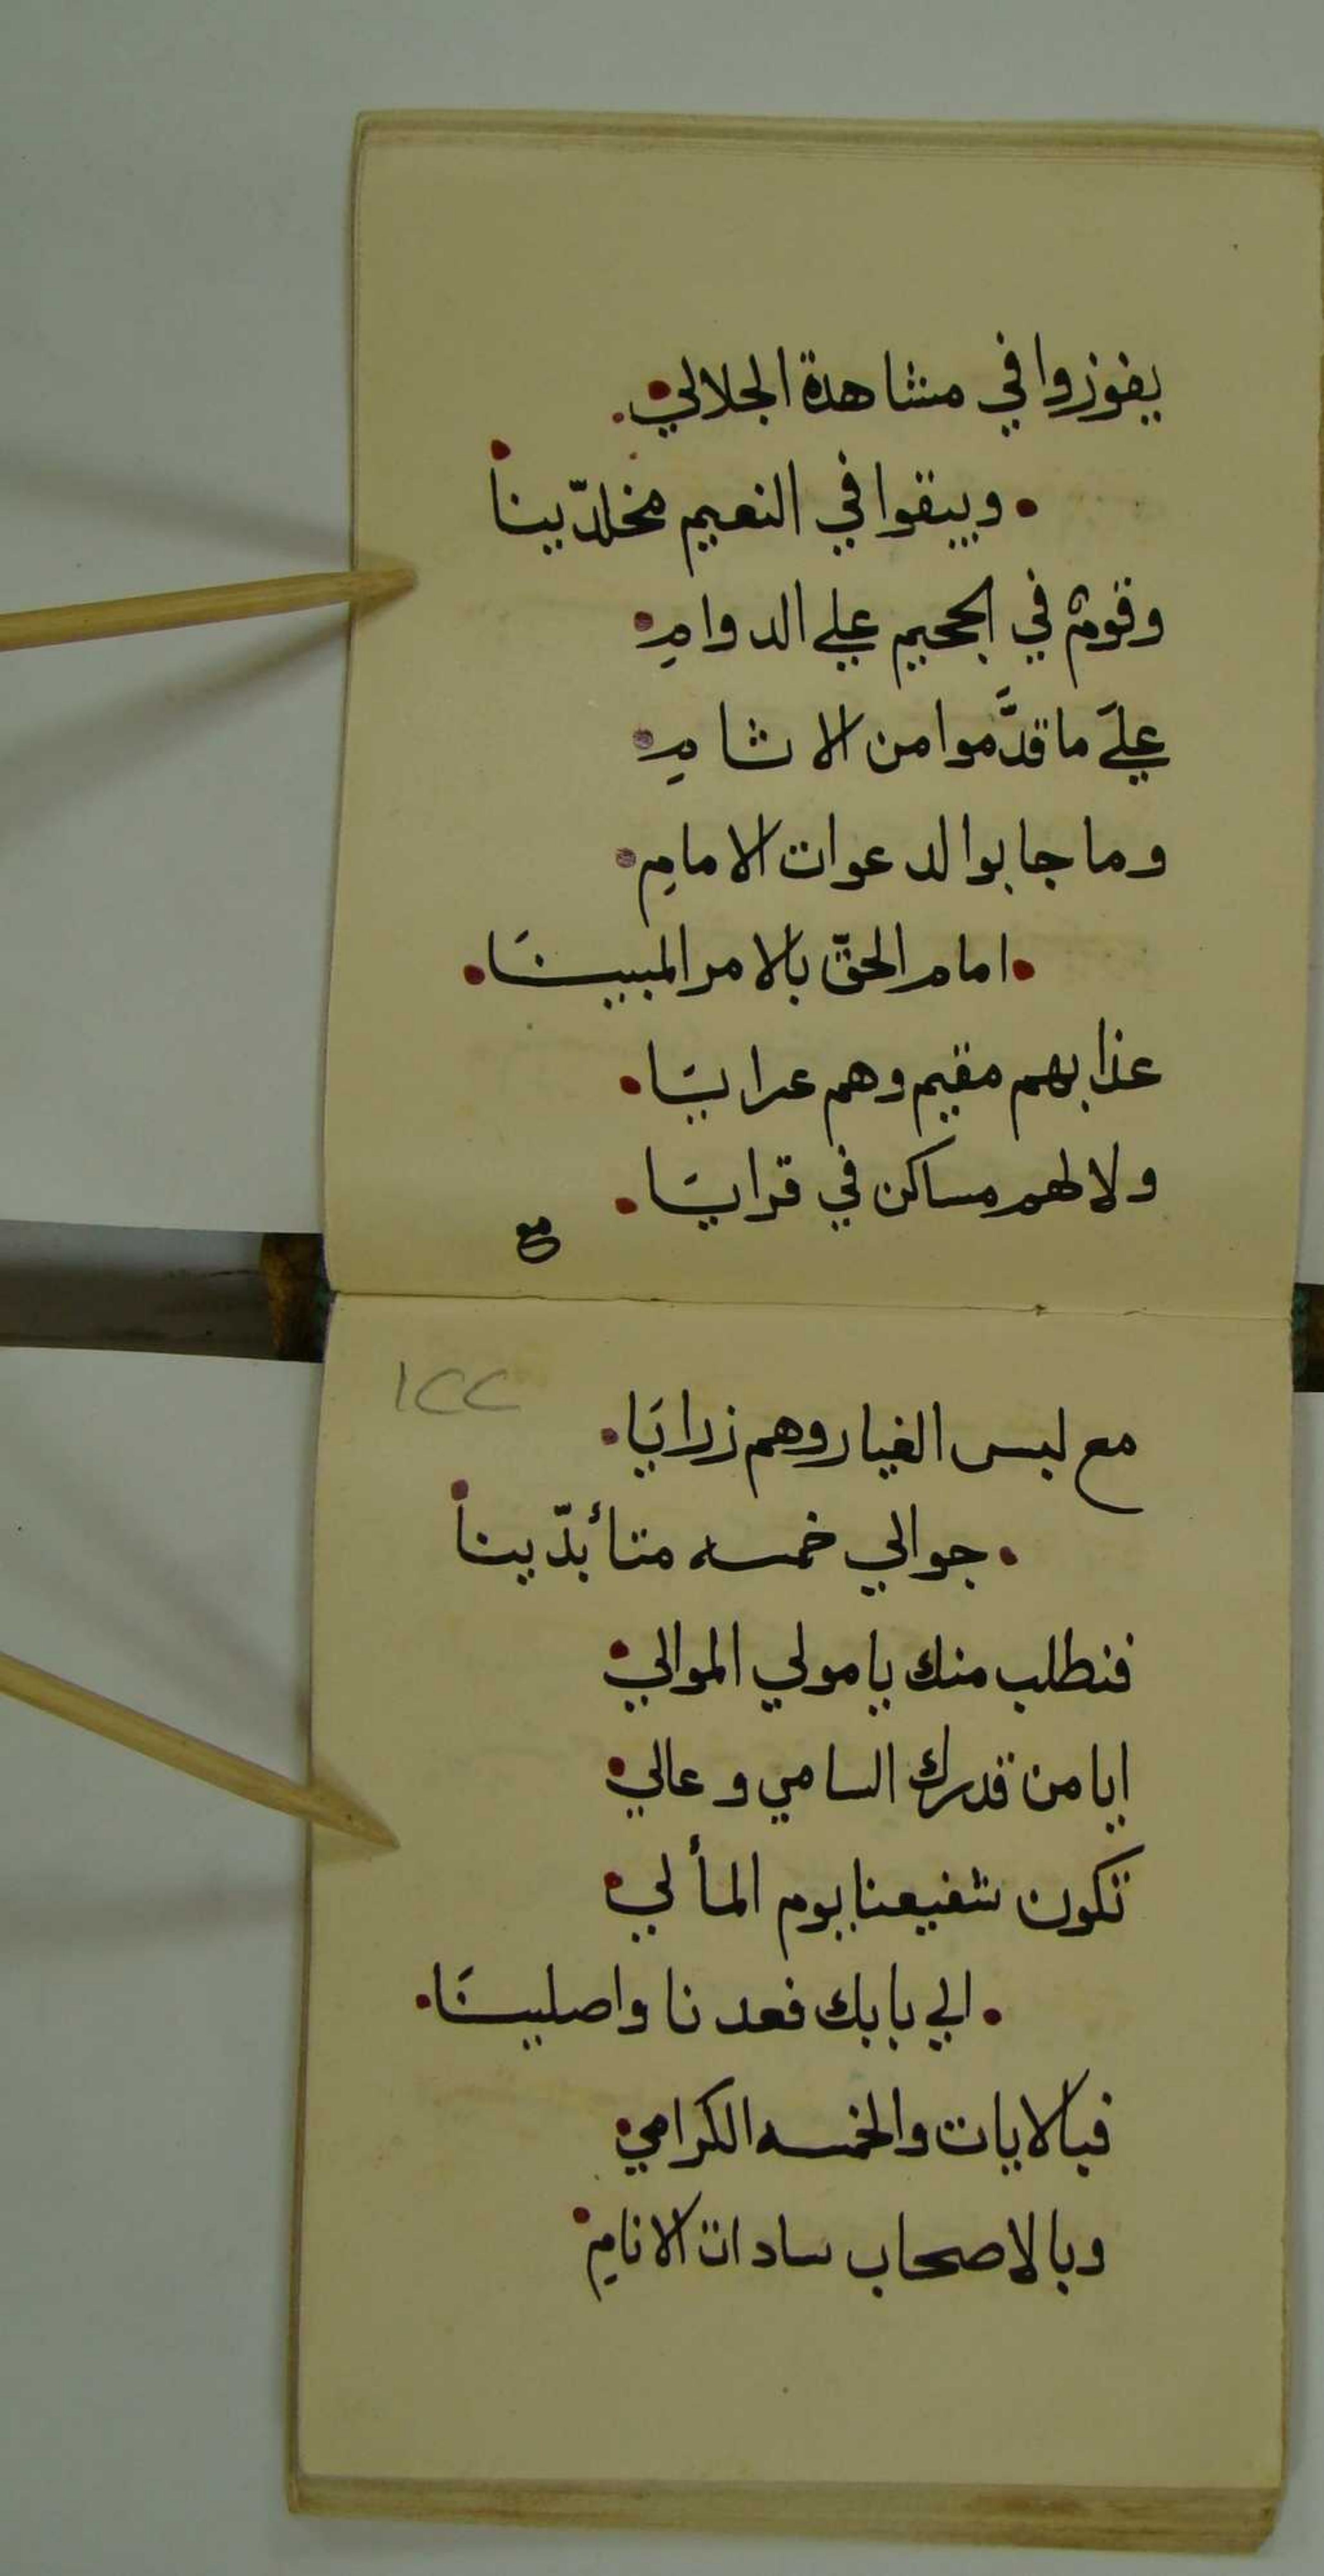 يفوزوا في مشاهدة الجلالي
ويبقوا في النعيم مخلدّينا
وقومٌ في الجحيم علي الدوامِ
عليَ ما قدَّموا من الاثامِ
وما جابوا لدعوات الامامِ
امام الحقّ بالامر المبينَا
عذابهم مقيم وهم عرايَا
ولا لهم مساكن في قرايَا
مع
١٢٢
مع لبس الغيار وهم زرايَا
جوالي خمسه متأبدّينا
فنطلب منك يا مولي الموالي
ايا من قدرك السامي وعالي
تكون شفيعنا يوم المألي
الي بابك فعدنا واصلينَا
فبالايات والخمسه الكرامي
وبالاصحاب سادات الانامِ